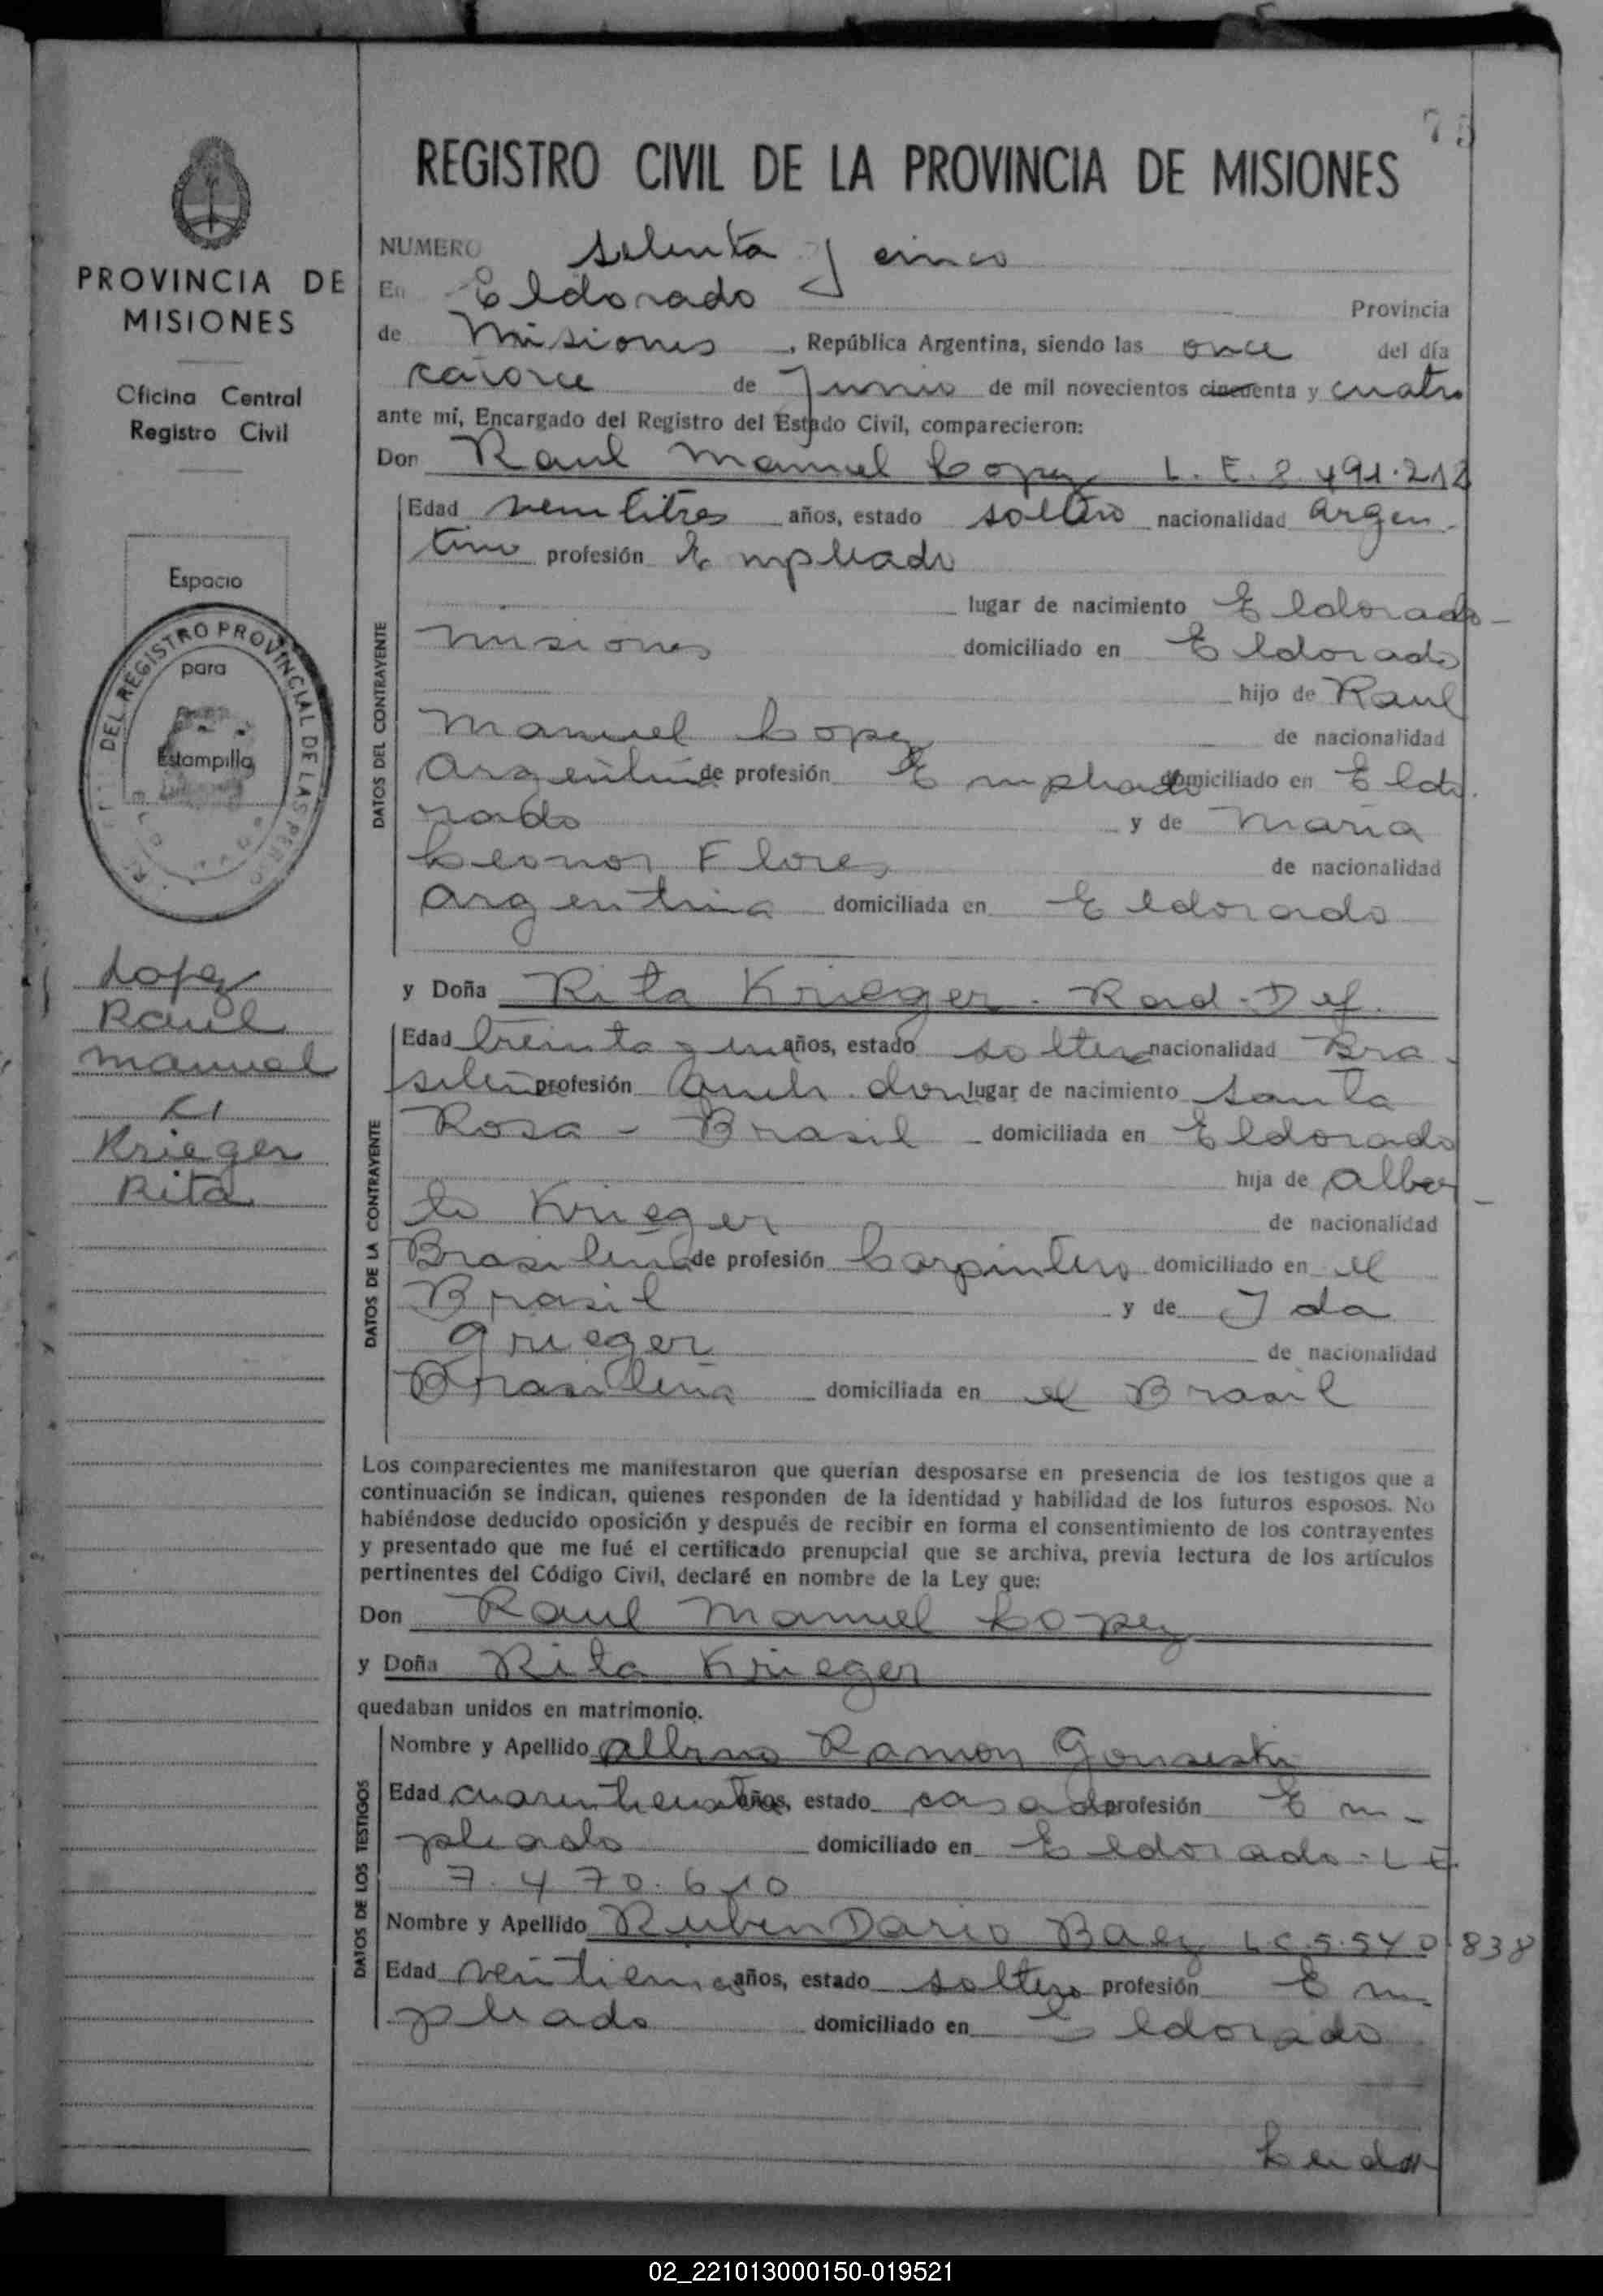 75
REGISTRO CIVIL DE LA PROVINCIA DE MISIONES
PROVINCIA DE
MISIONES
Oficina Central
Registro Civil
Espacio
para
Estampilla
DEL REGISTRO PROVINCIAL DE LAS PERSO
Lopez
Raul
Manuel
c/
Krieger
Rita
NUMERO setenta y cinco
En Eldorado Provincia
de Misiones, República Argentina, siendo las once del día
catorce de Junio de mil novecientos cincuenta y cuatro
ante mí, Encargado del Registro del Estado Civil, comparecieron:
Don Raul Manuel Lopez L. E. 8.491.212
DATOS DEL CONTRAYENTE
Edad veintitres años, estado soltero nacionalidad Argen-
tino profesión Empleado
lugar de nacimiento Eldorado-
Misiones domiciliado en Eldorado
hijo de Raul
Manuel Lopez de nacionalidad
Argentina de profesión Empleado domiciliado en Eldo
rado y de Maria
Leonor Flores de nacionalidad
Argentina domiciliada en Eldorado
y Doña Rita Krieger. Rad. Def.
DATOS DE LA CONTRAYENTE
Edad treinta y un años, estado soltera nacionalidad Bra-
sileña profesión Queh. dom lugar de nacimiento Santa
Rosa - Brasil domiciliada en Eldorado
hija de Alber-
to Krieger de nacionalidad
Brasilena de profesión Carpintero domiciliado en el
Brasil y de Ida
Grieger de nacionalidad
Brasilena domiciliada en el Brasil
Los comparecientes me manifestaron que querían desposarse en presencia de los testigos que a
continuación se indican, quienes responden de la identidad y habilidad de los futuros esposos. No
habiéndose deducido oposición y después de recibir en forma el consentimiento de los contrayentes
y presentado que me fué el certificado prenupcial que se archiva, previa lectura de los artículos
pertinentes del Código Civil, declaré en nombre de la Ley que:
Don Raul Manuel Lopez
y Doña Rita Krieger
quedaban unidos en matrimonio.
DATOS DE LOS TESTIGOS
Nombre y Apellido Ramon
Edad años, estado casado profesión Em-
pleado domiciliado en Eldorado. L E.
7.470.610
Nombre y Apellido Ruben Dario Baez L C. 5.540.838
Edad años, estado soltero profesión Em-
pleado domiciliado en Eldorado
02_221013000150-019521